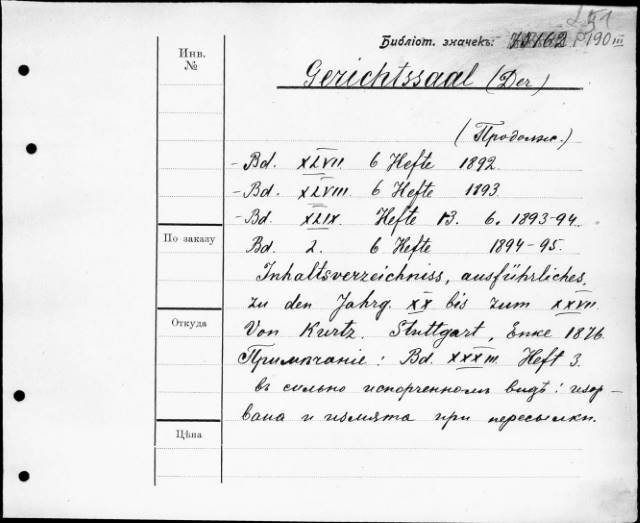 Библіот. значекъ: 190 III
Инв. №
Gerichtssaal (Der)
(Продолж.)
- Bd. XLVII 6 Hefte 1892.
- Bd. XLVIII 6 Hefte 1893.
- Bd. XLIX. Hefte 6. 1893-94.
По заказу
Bd 6 Hefte 1894-95.
Inhaltsverzeichniss, ausführliches,
zu den Jahrg. XX bis zum XXVII.
Откуда
Von Kurtz. Stuttgart, Enke 1876.
Примѣчаніе: Bd. XXXIII Heft 3.
въ сильно испорченномъ видѣ: изор-
вана и измята при пересылки.
Цѣна